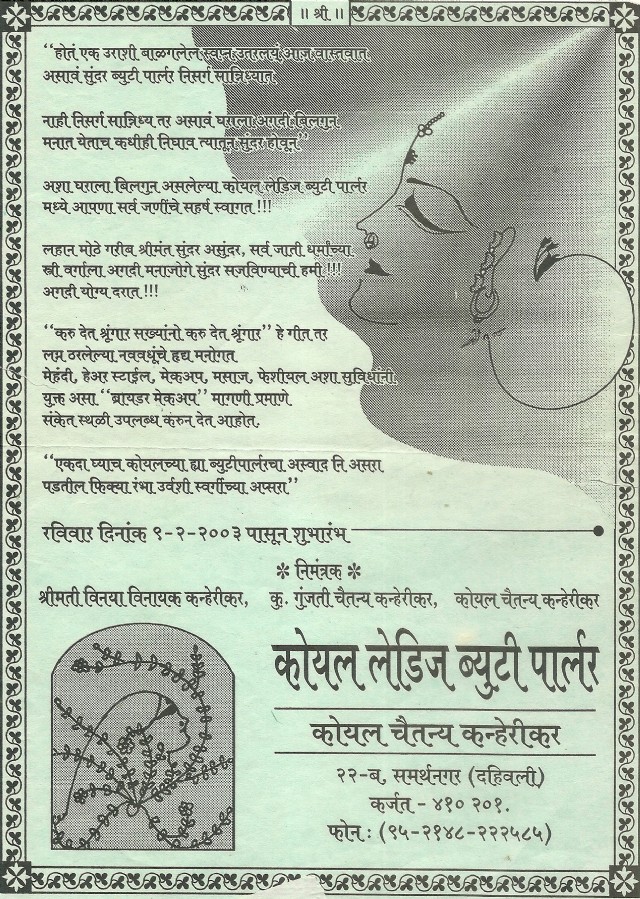 ॥ श्री ॥
“होतं एक उराशी बाळगलेलं स्वप्न उतरलयं आज वास्तवात
असावं सुंदर ब्युटी पार्लर निसर्ग सान्निध्यात
नाही निसर्ग सान्निध्य तर असावं घराला अगदी बिलगुन
मनात येताच कधीही निघाव त्यातून सुंदर होवून”
अशा घराला बिलगुन असलेल्या कोयल लेडिज ब्युटी पार्लर
मध्ये आपणा सर्व जणींचे सहर्ष स्वागत !!!
लहान मोठे गरीब श्रीमंत सुंदर असुंदर, सर्व जाती धर्मांच्या
स्त्री वर्गाला अगदी मनाजोगे सुंदर सजविण्याची हमी !!!
अगदी योग्य दरात !!!
“करु देत श्रृंगार सख्यांनो करु देत श्रृंगार” हे गीत तर
लग्न ठरलेल्या नववधूंचे हृद्य मनोगत
मेहंदी, हेअर स्टाईल, मेकअप, मसाज, फेशीयल अशा सुविधांनी
युक्त असा “ब्रायडर मेकअप” मागणी प्रमाणे
संकेत स्थळी उपलब्ध करुन देत आहोत.
“एकदा घ्याच कोयलच्या ह्या ब्युटीपार्लरचा अस्वाद नि असरा
पडतील फिक्या रंभा उर्वशी स्वर्गीच्या अप्सरा”
रविवार दिनांक ९-२-२००३ पासून शुभारंभ
✻ निमंत्रक ✻
श्रीमती विनया विनायक कन्हेरीकर, कु. गुंजती चैतन्य कन्हेरीकर, कोयल चैतन्य कन्हेरीकर
कोयल लेडिज ब्युटी पार्लर
कोयल चैतन्य कन्हेरीकर
२२-ब, समर्थनगर (दहिवली)
कर्जत - ४१० २०१.
फोन : (९५-२१४८-२२२५८५)